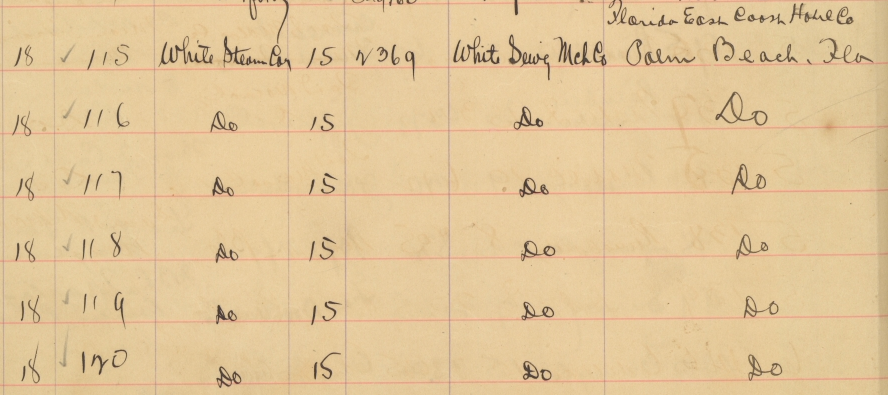 Florida East Coast Hotel Co
18 ✓ 115 White Steam Car 15 2369 White Sewg Mch Co Palm Beach. Fla
18 ✓ 116 Do 15 Do Do
18 ✓ 117 Do 15 Do Do
18 ✓ 118 Do 15 Do Do
18 ✓ 119 Do 15 Do Do
18 ✓ 120 Do 15 Do Do